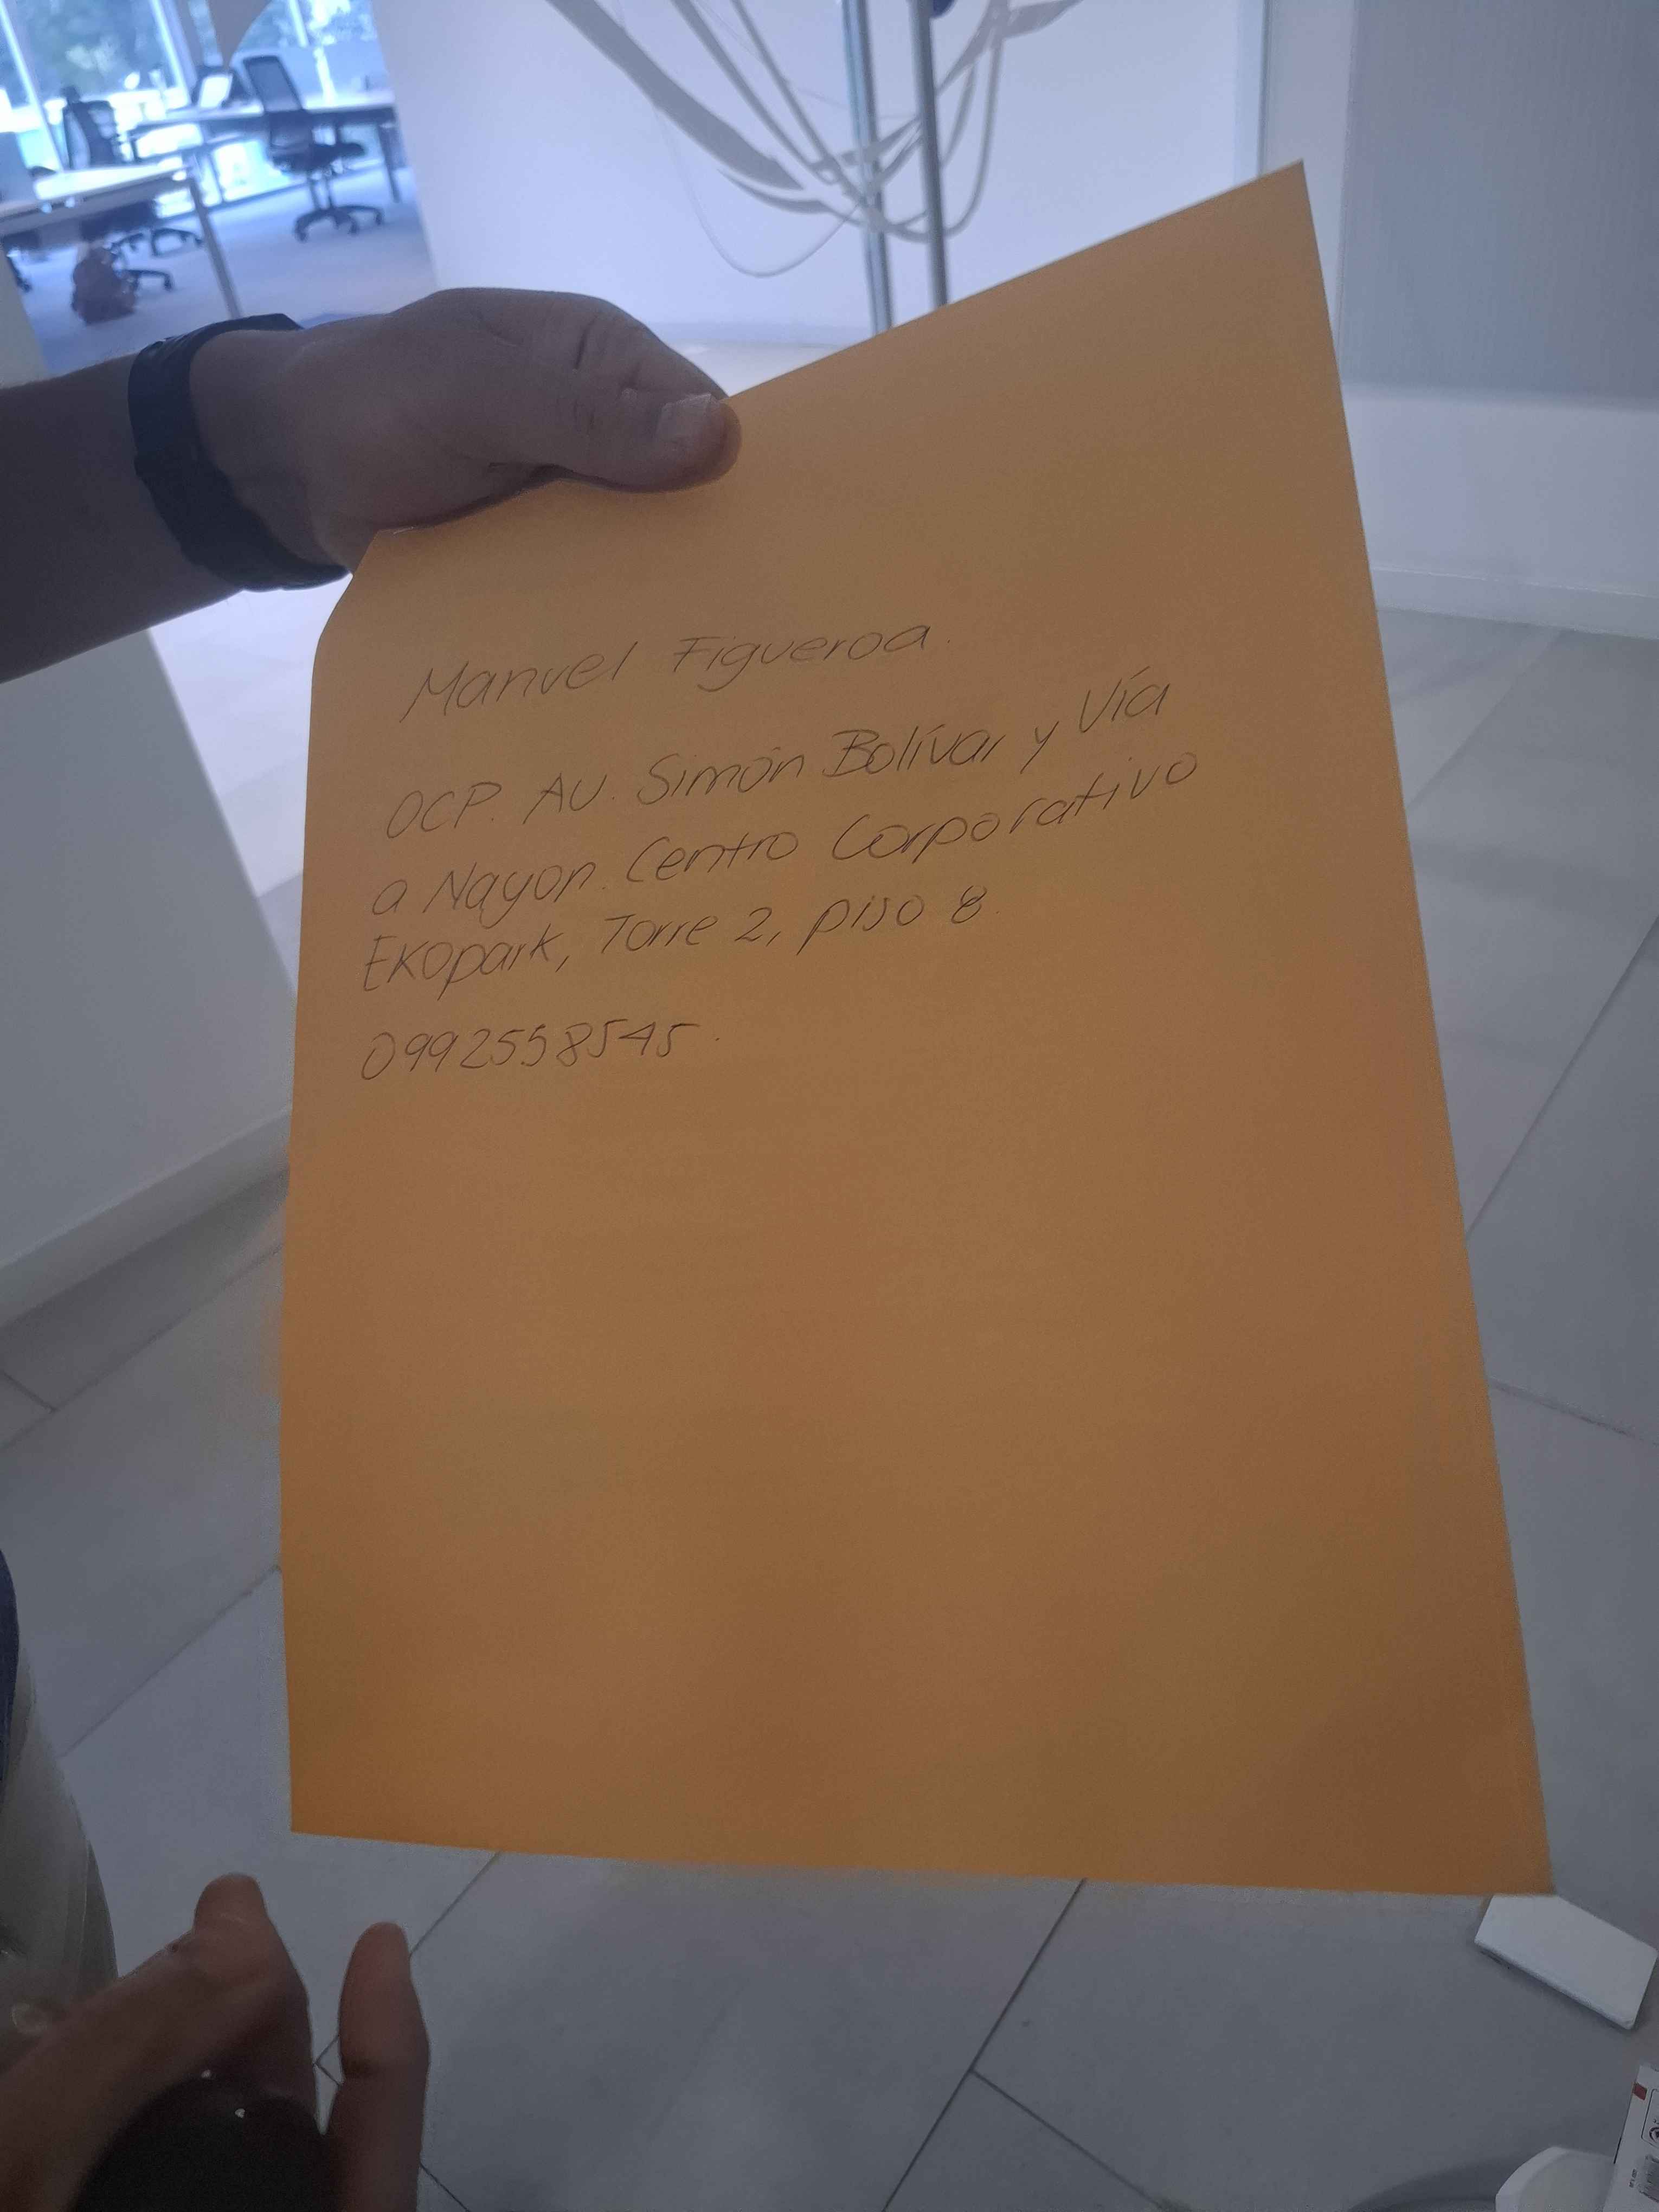 Manuel Figueroa.
OCP. AV. Simón Bolívar y Vía
a Nayon. Centro Corporativo
Ekopark, Torre 2, piso 8.
0992558545.